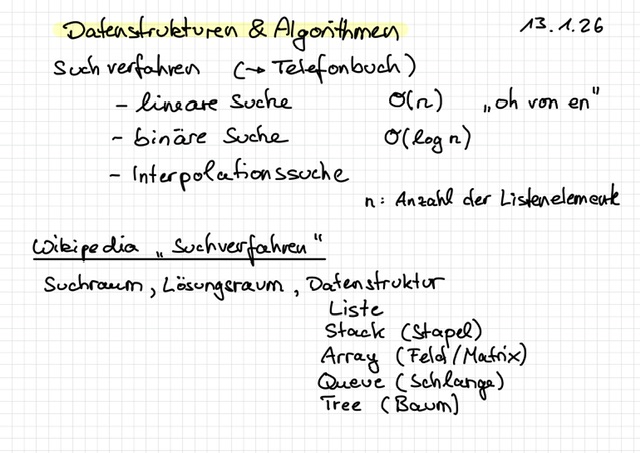 Datenstrukturen & Algorithmen 13.1.26
Suchverfahren (→ Telefonbuch)
- lineare Suche O(n) „oh von en"
- binäre Suche O(log n)
- Interpolationssuche
n: Anzahl der Listenelemente
Wikipedia „Suchverfahren"
Suchraum, Lösungsraum, Datenstruktur
Liste
Stack (Stapel)
Array (Feld/Matrix)
Queue (Schlange)
Tree (Baum)